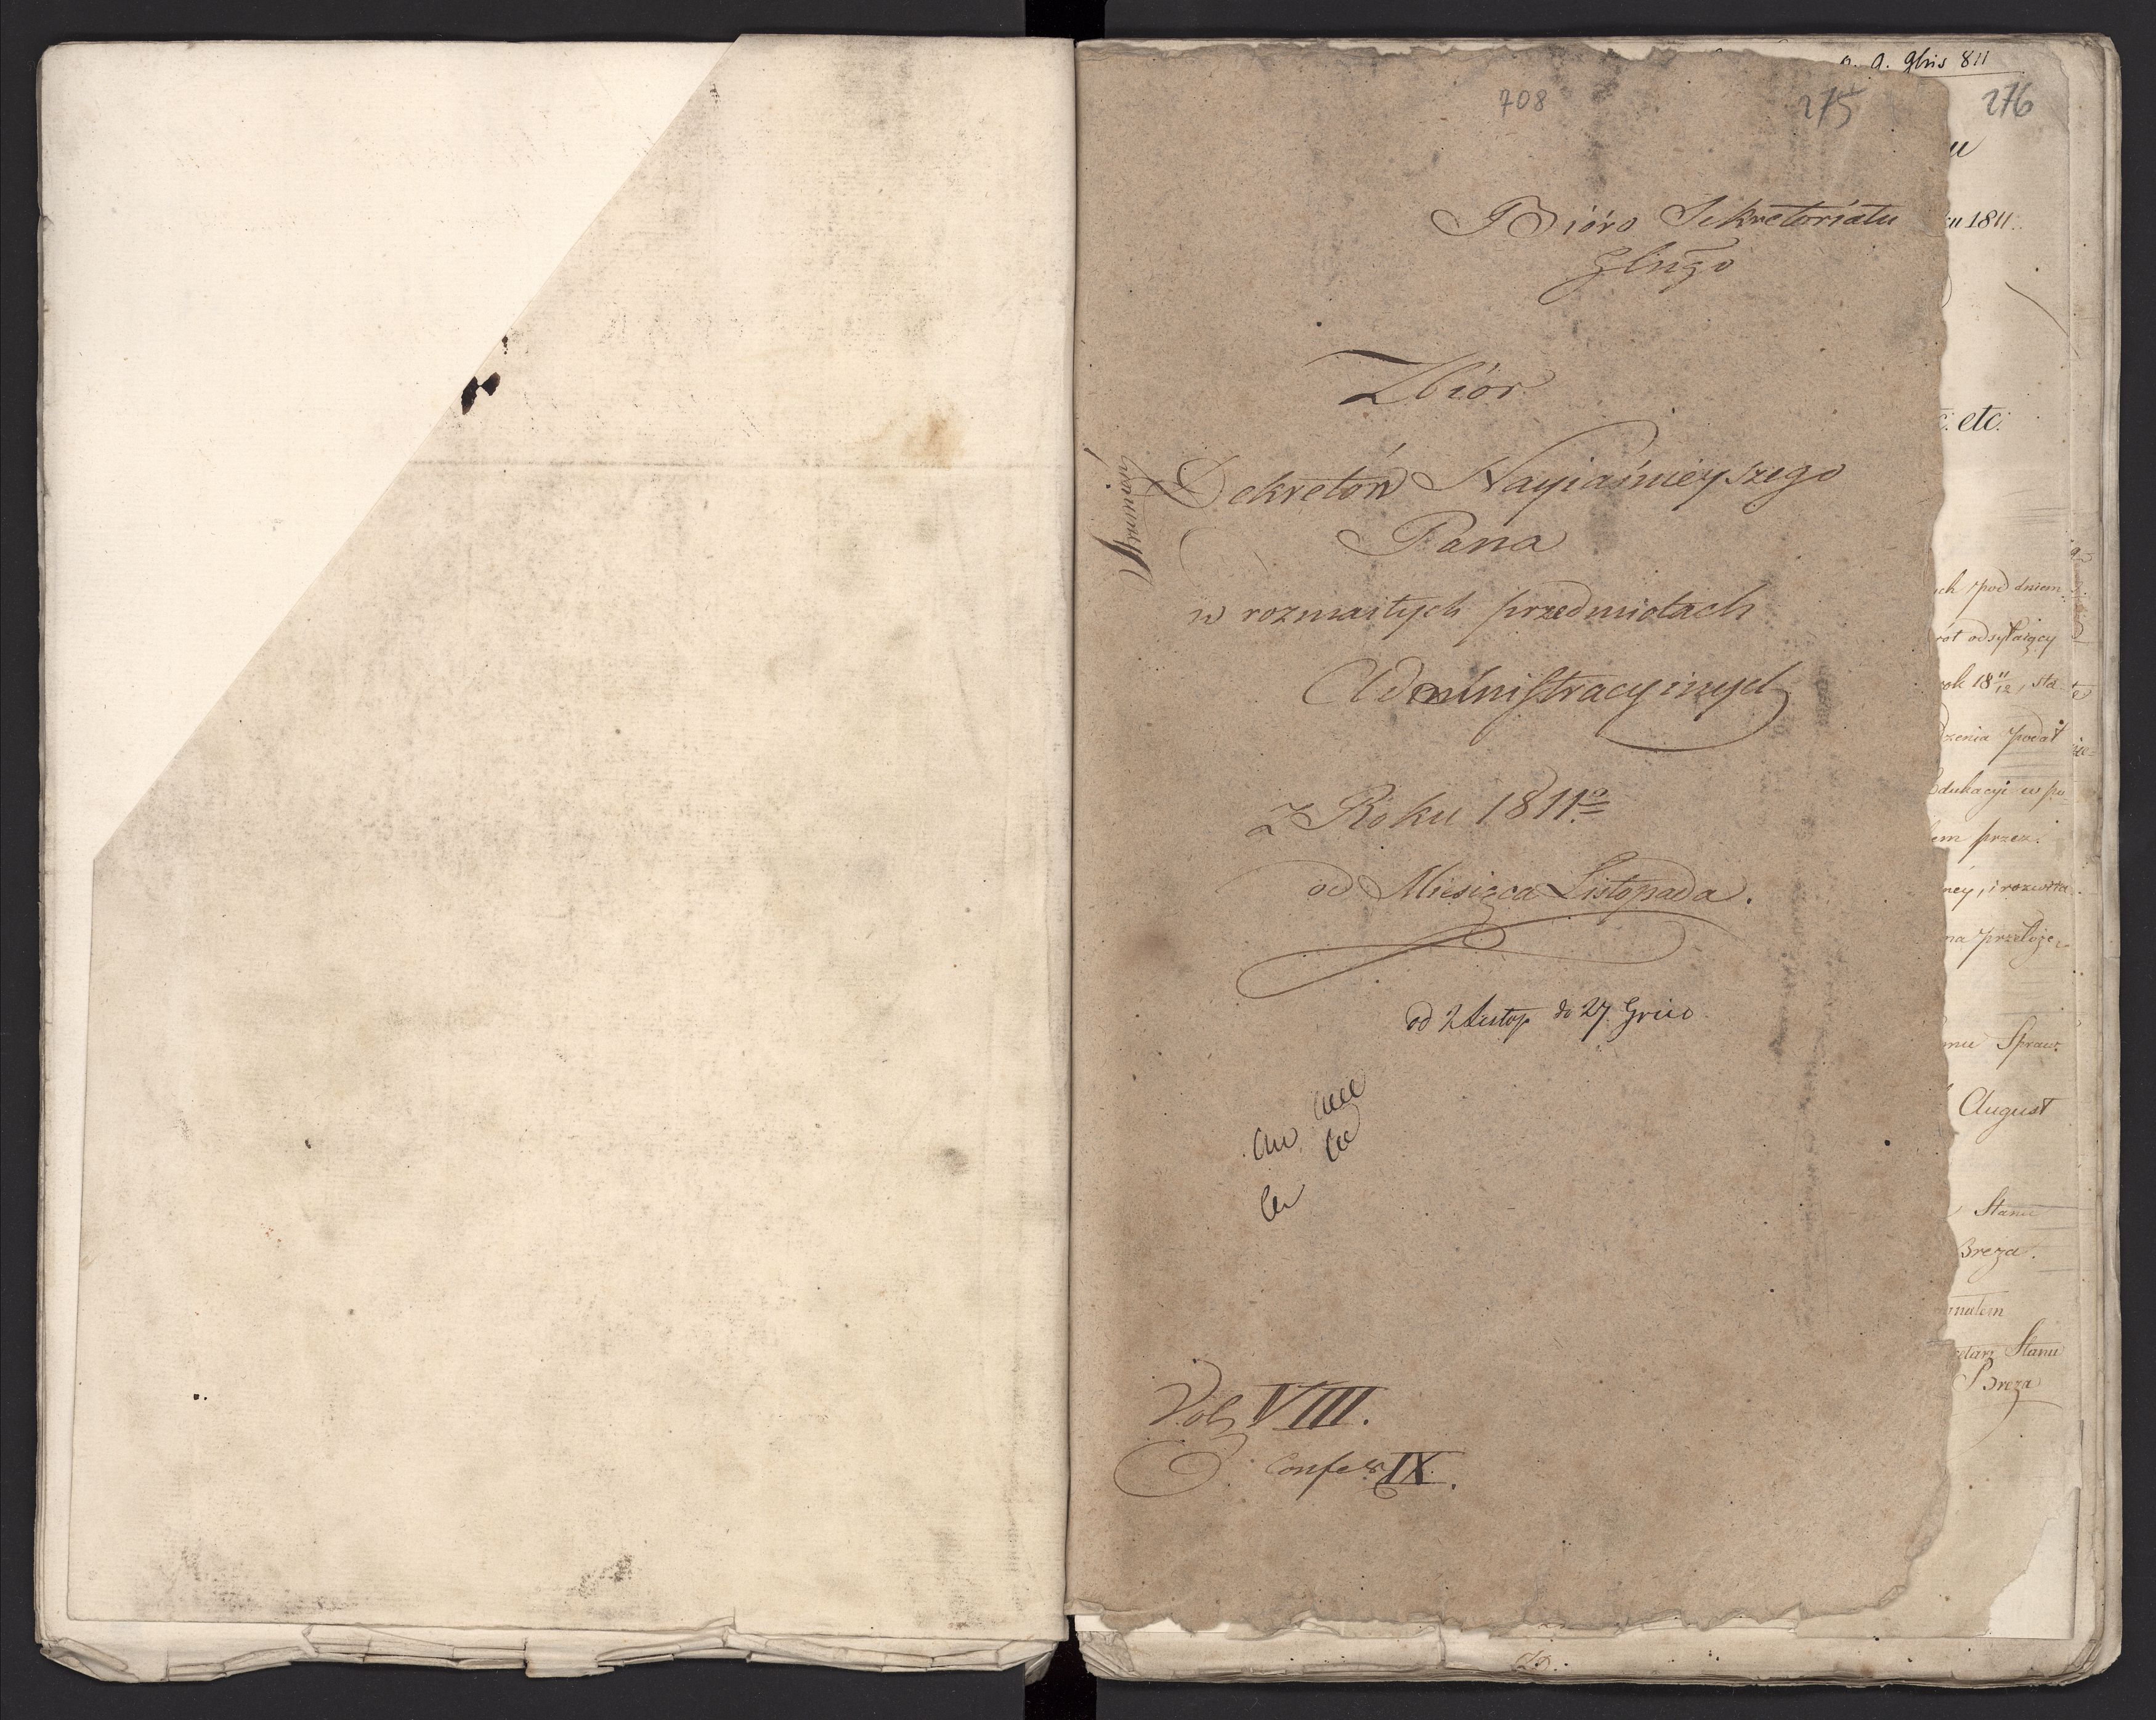 708
275
Bióro Sekretariatu
Glngo
Zbiór
Dekretów Nayiaśnieyszego
Pana
w rozmaitych przedmiotach
Administracyinych
z Roku 1811º
od Miesiąca Listopada.
od 2 Listop do 27 Gru
Vol VIII.
IX.
9bris 811
276
u 1811.
etc.
pod dniem
odsyłaiący
ok 18 11/12, sta
dzenia podat
Edukacyi w po
em przez
ney, i rozwa
na przełoże
mu Spraw:
August
Stanu
Breza.
Stanu
Breza